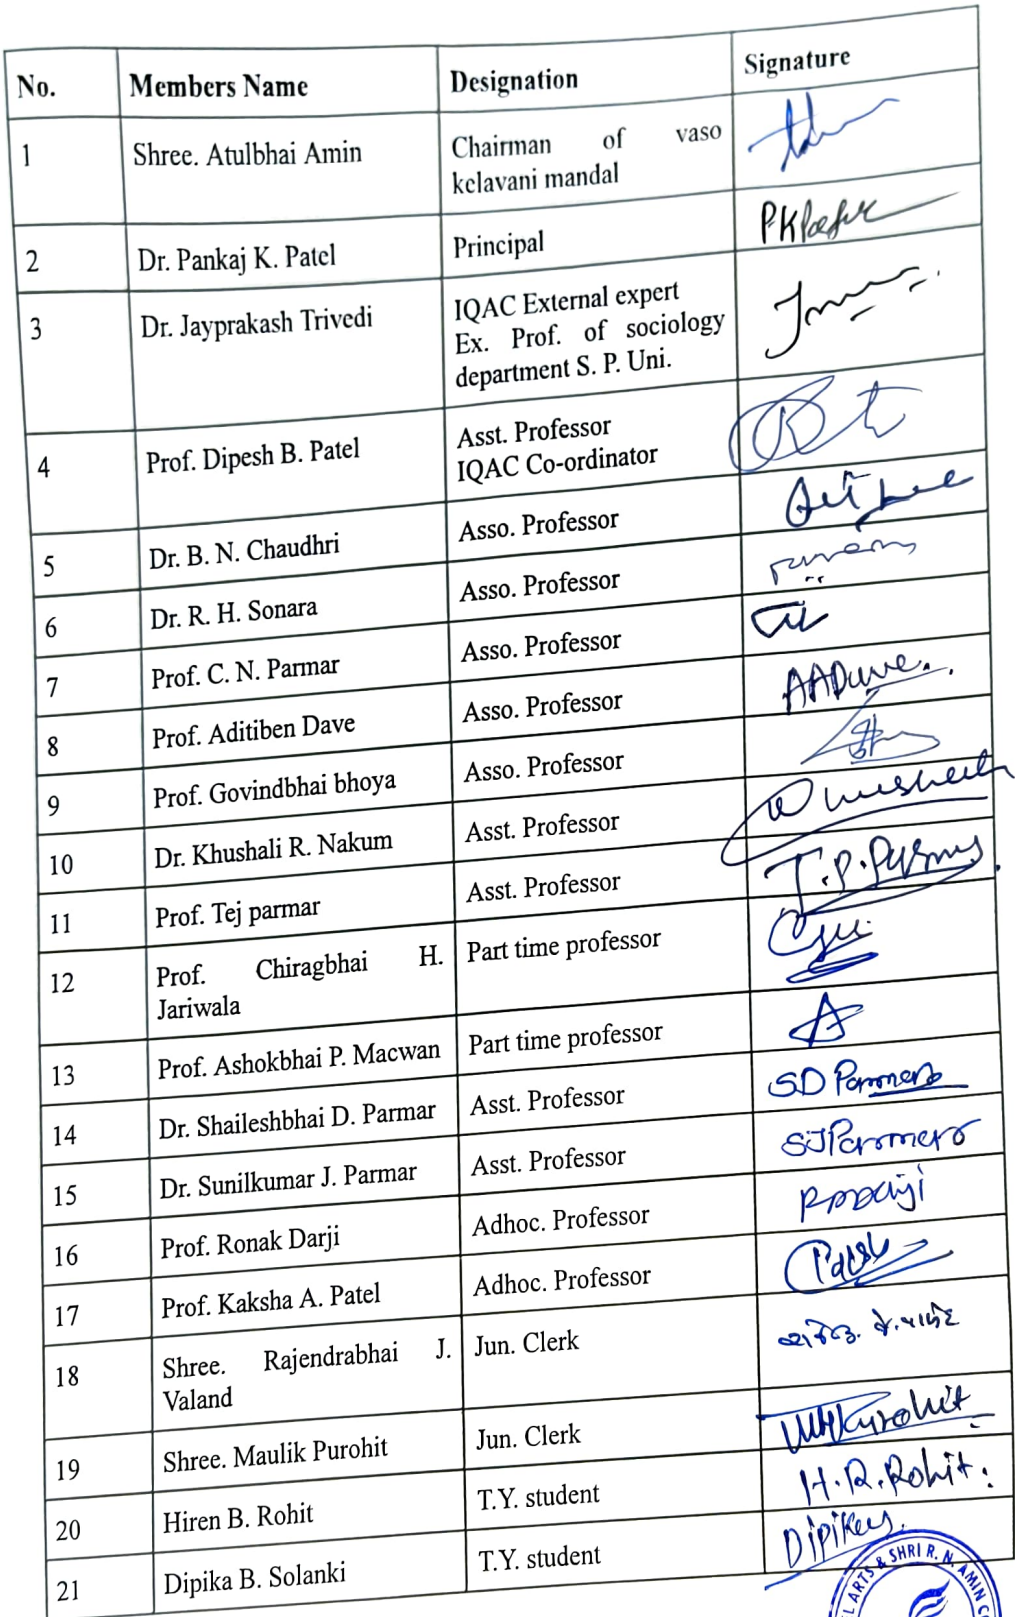 No. Members Name Designation Signature
1 Shree. Atulbhai Amin Chairman of vaso
kelavani mandal
2 Dr. Pankaj K. Patel Principal PKPatel
3 Dr. Jayprakash Trivedi IQAC External expert
Ex. Prof. of sociology
department S. P. Uni.
4 Prof. Dipesh B. Patel Asst. Professor
IQAC Co-ordinator
5 Dr. B. N. Chaudhri Asso. Professor
6 Dr. R. H. Sonara Asso. Professor
7 Prof. C. N. Parmar Asso. Professor
8 Prof. Aditiben Dave Asso. Professor AADave.
9 Prof. Govindbhai bhoya Asso. Professor
10 Dr. Khushali R. Nakum Asst. Professor
11 Prof. Tej parmar Asst. Professor T.P.Parmar
12 Prof. Chiragbhai H. Part time professor
Jariwala
13 Prof. Ashokbhai P. Macwan Part time professor
14 Dr. Shaileshbhai D. Parmar Asst. Professor SD Parmar
15 Dr. Sunilkumar J. Parmar Asst. Professor SJParmar
16 Prof. Ronak Darji Adhoc. Professor
17 Prof. Kaksha A. Patel Adhoc. Professor
18 Shree. Rajendrabhai J. Jun. Clerk
Valand
19 Shree. Maulik Purohit Jun. Clerk
20 Hiren B. Rohit T.Y. student H.R.Rohit.
21 Dipika B. Solanki T.Y. student Dipika
ARTS & SHRI R. N. AMIN C